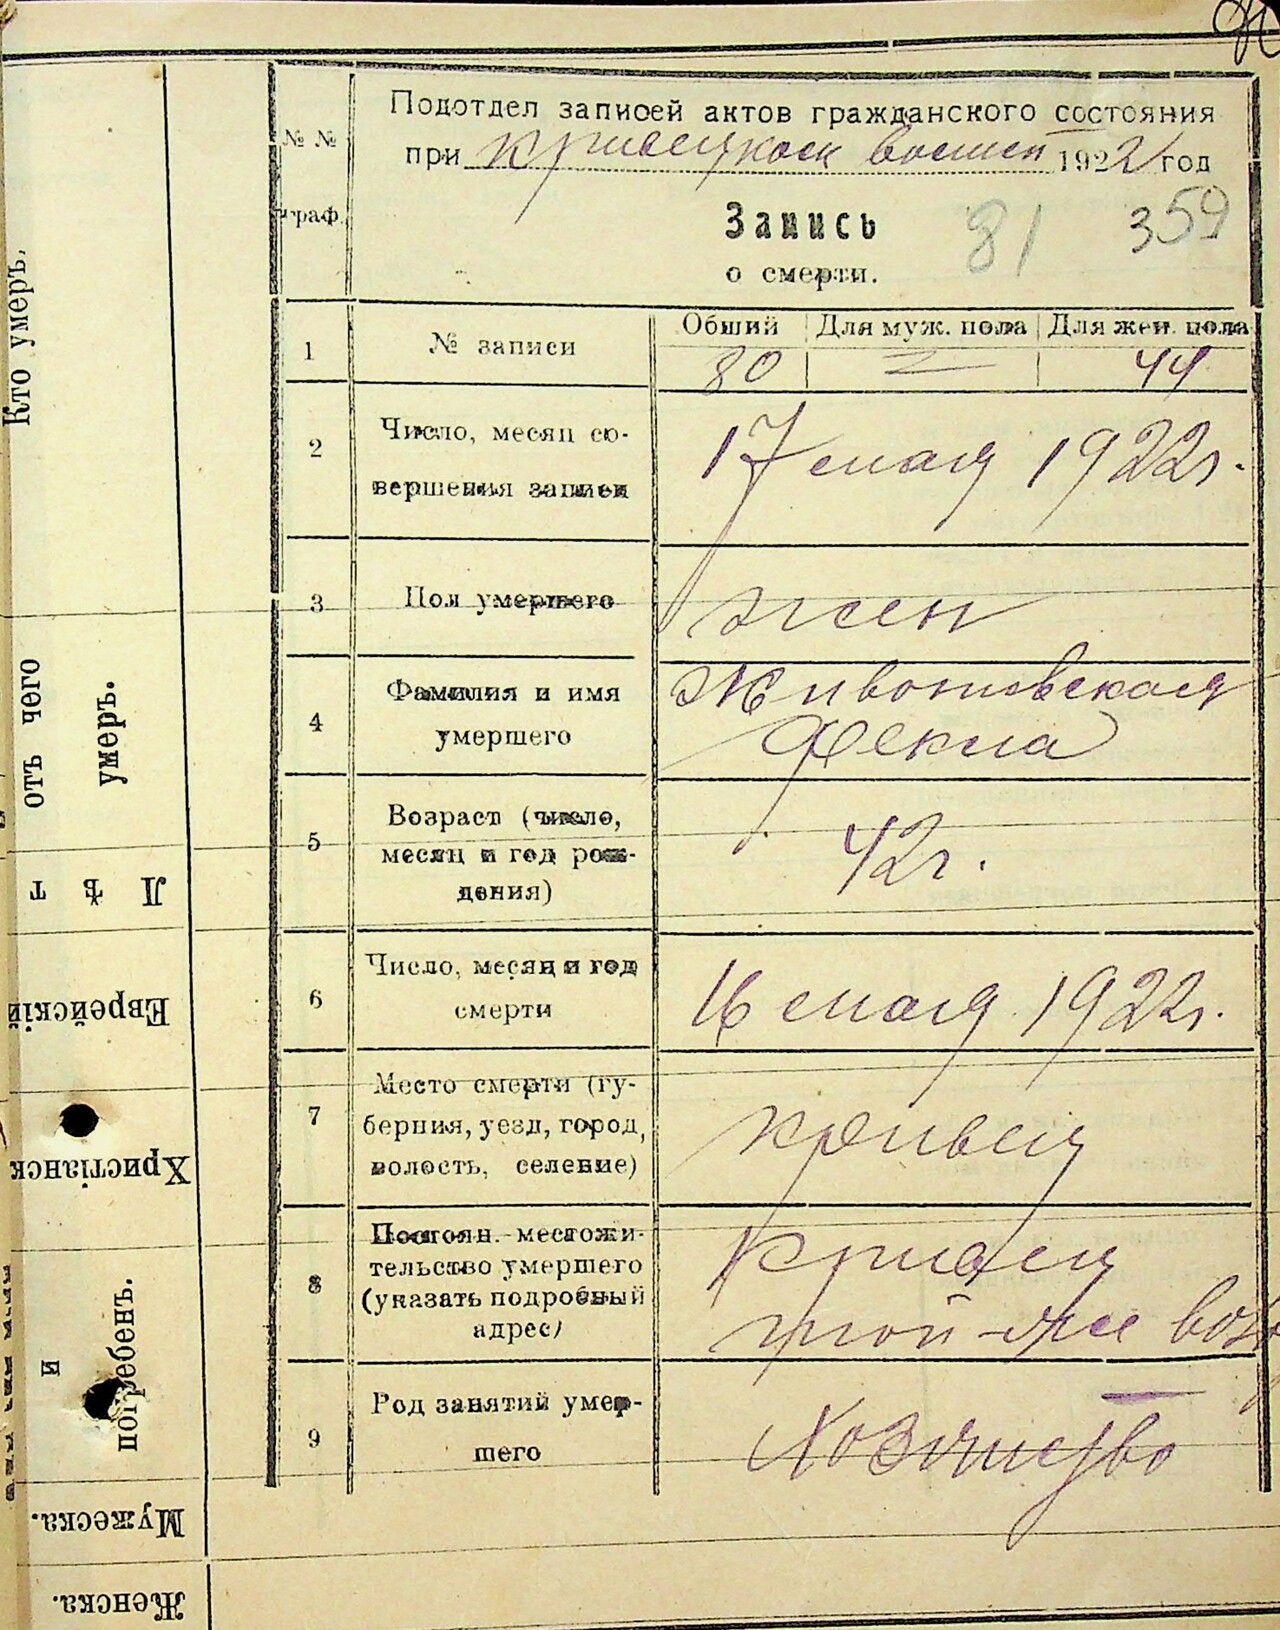 № №
граф.
Подотдел записей актов гражданского состояния
при Кривецком волисп 1922 год
Запись
81 359
о смерти.
1 № записи
Общий Для муж. пола Для жен. пола
80 — 44
2 Число, месяц со-
вершения записи
17 мая 1922 г.
3 Пол умершего
жен
4 Фамилия и имя
умершего
Животовская
Фекла
5 Возраст (число,
месяц и год рож-
дения)
42 г.
6 Число, месяц и год
смерти
16 мая 1922 г.
7 Место смерти (гу-
берния, уезд, город,
волость, селение)
Кривец
8 Постоян. местожи-
тельство умершего
(указать подробный
адрес)
Кривец
той-же вол
9 Род занятий умер-
шего
Хозяйство
Кто умеръ,
отъ чего
умеръ.
Лѣт
Еврейскій
Христіанск
и
погребенъ.
Мужеска.
Женска.